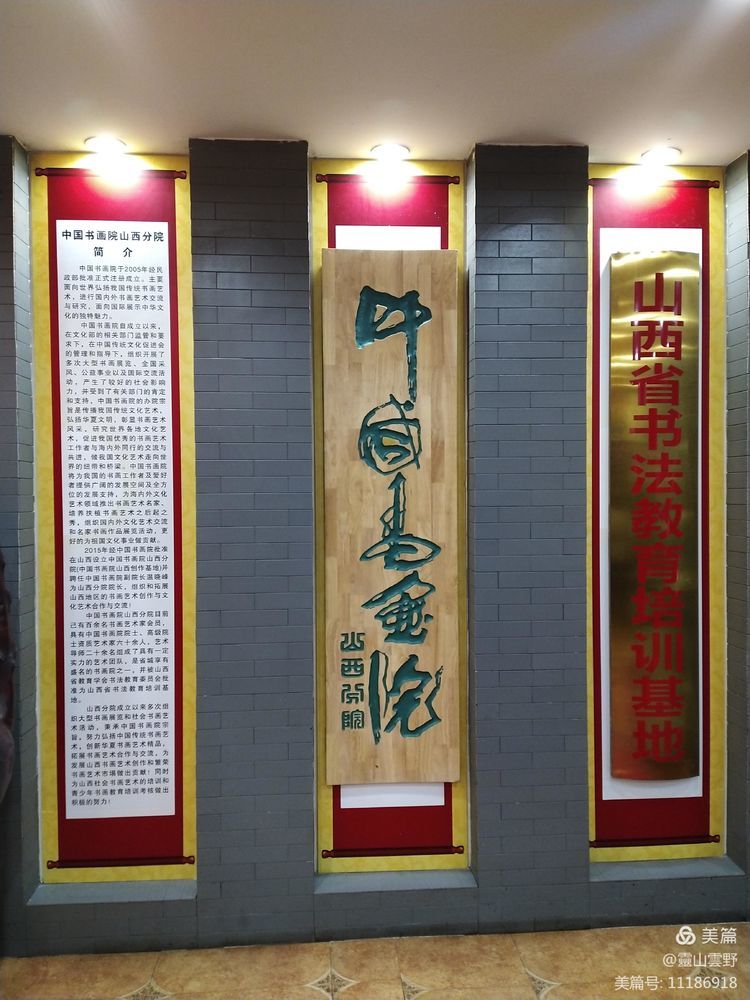 中国书画院山西分院
简 介
中国书画院于2005年经民
政部批准正式注册成立。主要
面向世界弘扬我国传统书画艺
术，进行国内外书画艺术交流
与研究，面向国际展示中华文
化的独特魅力。
中国书画院自成立以来，
在文化部的相关部门监管和要
求下，在中国传统文化促进会
的管理和指导下，组织开展了
多次大型书画展览、全国采
风、公益事业以及国际交流活
动，产生了较好的社会影响
力，并受到了有关部门的肯定
和支持，中国书画院的办院宗
旨是传播我国传统文化艺术，
弘扬华夏文明，彰显书画艺术
风采，研究世界各地文化艺
术，促进我国优秀的书画艺术
工作者与海内外同行的交流与
共进，做我国文化艺术走向世
界的纽带和桥梁。中国书画院
将为我国的书画工作者及爱好
者提供广阔的发展空间及全方
位的发展支持，为海内外文化
艺术领域推出书画艺术名家、
培养扶植书画艺术之后起之
秀，组织国内外文化艺术交流
和名家书画作品展览活动，更
好的为祖国文化事业做贡献。
2015年经中国书画院批准
在山西设立中国书画院山西分
院(中国书画院山西创作基地)并
聘任中国书画院副院长温晓峰
为山西分院院长，组织和拓展
山西地区的书画艺术创作与文
化艺术合作与交流！
中国书画院山西分院目前
已有百余名书画艺术家会员，
具有中国书画院院士、高级院
士资质艺术家六十余人，艺术
导师二十余名组成了具有一定
实力的艺术团队，是省城享有
盛名的书画院之一，并被山西
省教育学会书法教育委员会批
准为山西省书法教育培训基
地。
山西分院成立以来多次组
织大型书画展览和社会书画艺
术活动，秉承中国书画院宗
旨，努力弘扬中国传统书画艺
术，创新华夏书画艺术精品，
拓展书画艺术合作与交流，为
发展山西书画艺术创作和繁荣
书画艺术市场做出贡献！同时
为山西社会书画艺术的培训和
青少年书画教育培训考核做出
积极的努力！
中国书画院
山西分院
山西省书法教育培训基地
美篇
@靈山雲野
美篇号: 11186918